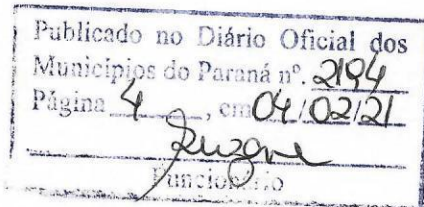 Publicado no Diário Oficial dos
Municípios do Paraná nº. 2194
Página 4, em 04/02/21
Funcionário